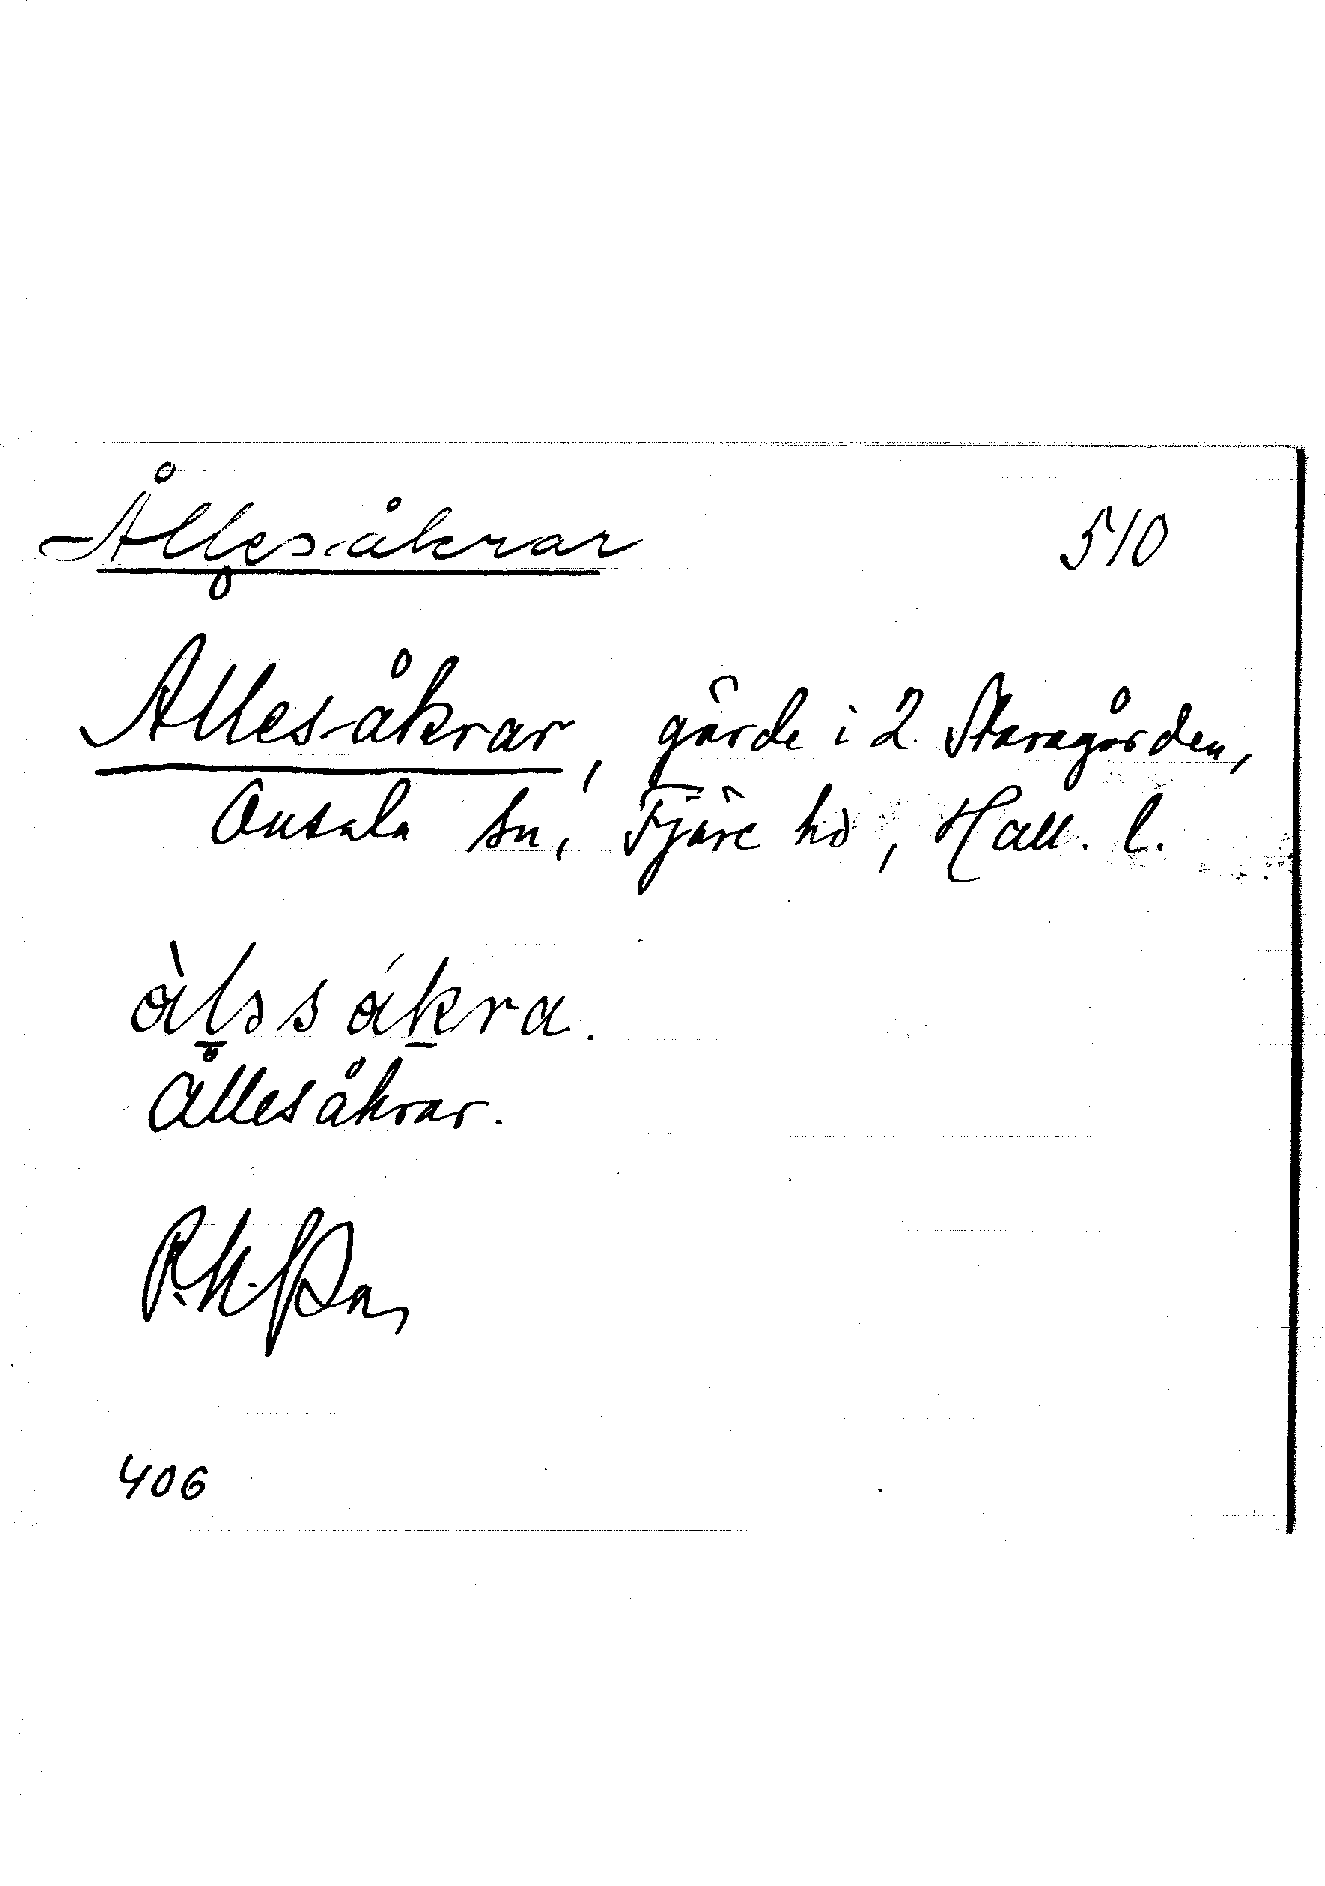 Ållesåkrar 510
Allesåkrar, gärde i 2 Staragården,
Onsala sn, Fjäre hd, Hall. l.
Ållesåkrar.
406